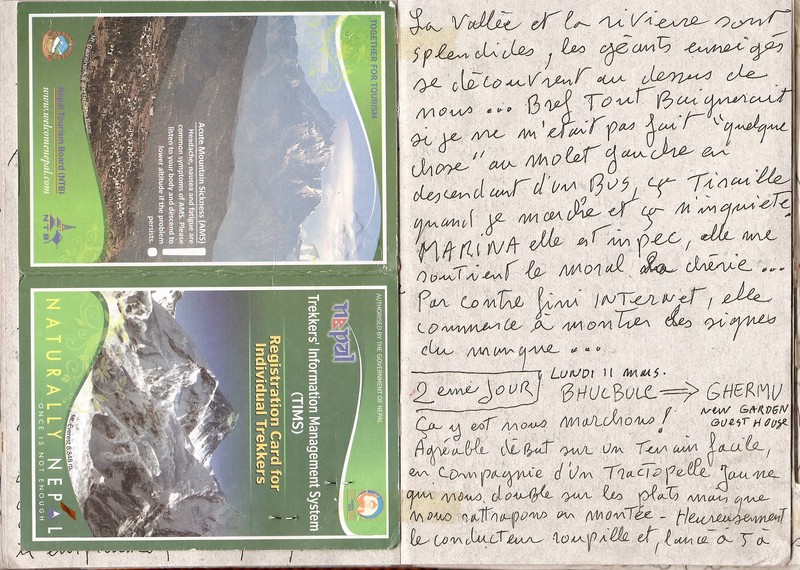 TOGETHER FOR TOURISM
Acute Mountain Sickness (AMS)
Headache, nausea and fatigue are
common symptoms of AMS. Please
listen to your body and descend to
lower altitude if the problem
persists.
Nepal Tourism Board (NTB)
www.welcomenepal.com
NTB
AUTHORISED BY THE GOVERNMENT OF NEPAL
nepal
Trekkers' Information Management System
(TIMS)
Registration Card for
Individual Trekkers
Mt. Everest 8,848 m.
NATURALLY NEPAL
ONCE IS NOT ENOUGH
La Vallée et la rivière sont
splendides, les géants enneigés
se découvrent au dessus de
nous... Bref Tout Baignerait
si je ne m'était pas fait "quelque
chose" au molet gauche en
descendant d'un Bus, ça Tiraille
quand je marche et ça m'inquiète.
MARINA elle est impec, elle me
soutient le moral la chérie...
Par contre fini INTERNET, elle
commence à montrer des signes
du manque...
2ème JOUR LUNDI 11 mars.
BHULBULE => GHERMU
NEW GARDEN
GUEST HOUSE
Ça y est nous marchons!
Agréable début sur un Terrain facile,
en compagnie d'un Tractopelle Jaune
qui nous double sur les plats mais que
nous rattrapons en montée - Heureusement
le conducteur roupille et, lancé à 5 à